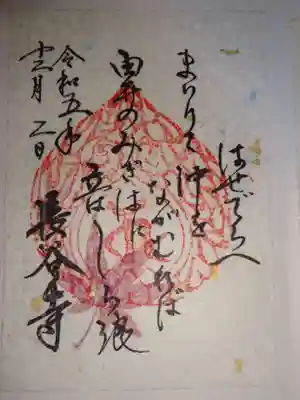 はせでらへ
まいりて沖を
ながむれば
由井のみぎはに
立はしら浪
長谷寺
令和五年
十二月二日